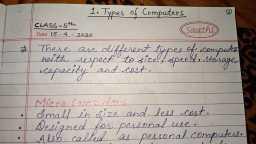 1. Types of Computers
CLASS - 5th
Date 15 - 4 - - 2020
There are different types of compute
with respect to size, speed, storage
capacity and cost.
Micro Computers
• Small in size and less cost.
• Designed for personal use.
• Also called as personal computers.